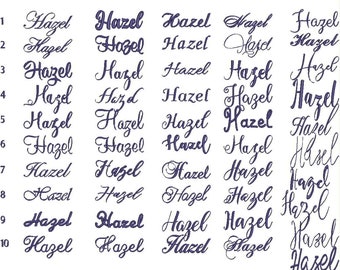 1 Hazel Hazel Hazel Hazel Hazel
2 Hazel Hazel Hazel Hazel Hazel
3 Hazel Hazel Hazel Hazel Hazel
4 Hazel Hazel Hazel Hazel Hazel
5 Hazel Hazel Hazel Hazel Hazel
6 Hazel Hazel Hazel Hazel Hazel
7 Hazel Hazel Hazel Hazel Hazel
8 Hazel Hazel Hazel Hazel Hazel
9 Hazel Hazel Hazel Hazel Hazel
10 Hazel Hazel Hazel Hazel Hazel